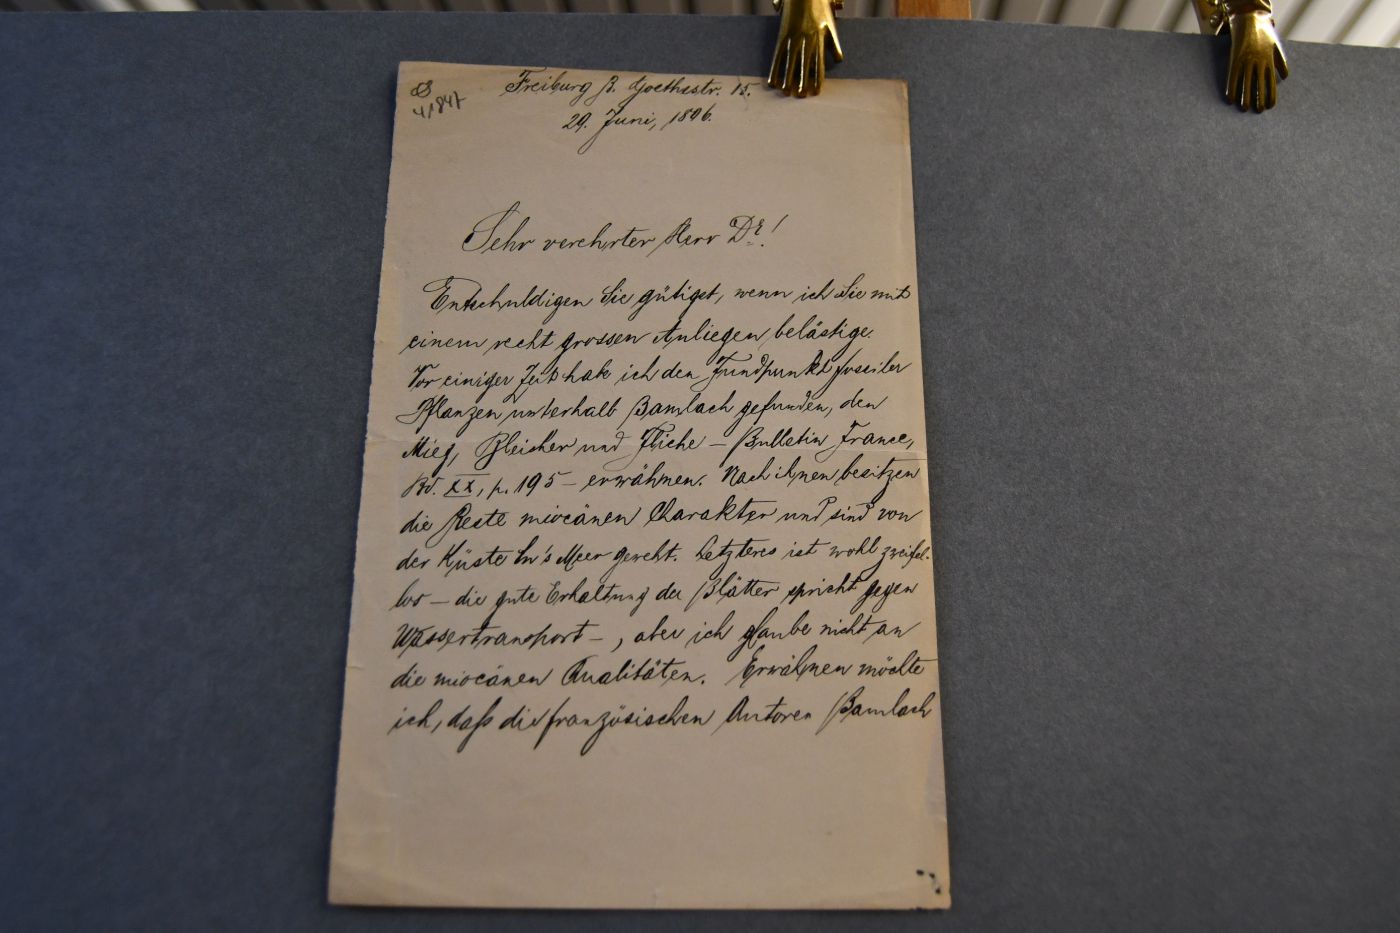 41847
Freiburg B. Goethestr. 15.
29. Juni, 1896.
Sehr verehrter Herr Dr.!
Entschuldigen Sie gütigst, wenn ich Sie mit
einem recht grossen Anliegen belästige.
Vor einiger Zeit habe ich den Fundpunkt fossiler
Pflanzen unterhalb Bamlach gefunden, den
Mieg, Bleicher und Fliche – Bulletin France,
Bd. XX, p. 195 – erwähnen. Nach ihnen besitzen
die Reste miocänen Charakter und sind von
der Küste in's Meer geweht. Letzteres ist wohl zweifel-
los – die gute Erhaltung der Blätter spricht gegen
Wassertransport –, aber ich glaube nicht an
die miocänen Qualitäten. Erwähnen möchte
ich, daß die französischen Autoren Bamlach